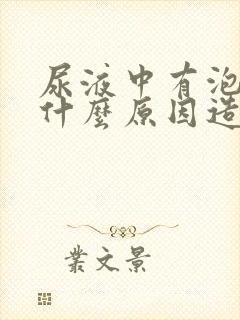 尿液中有泡
什麼原因造
業文景